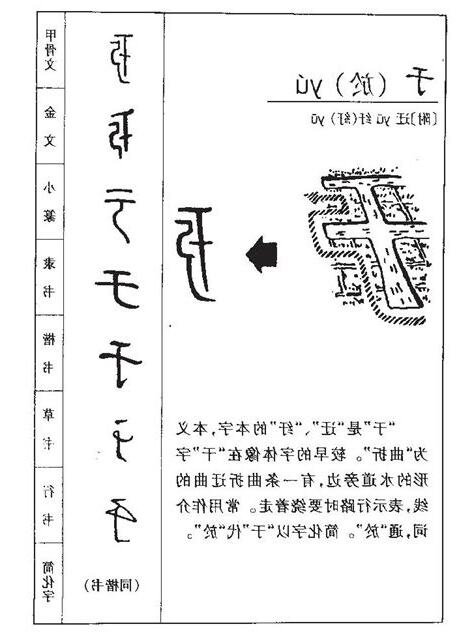 于 (於) yú
〔附〕迂 yū 纡(紆) yū
“于”是“迂”、“纡”的本字,本义
为“曲折”。较早的字体像在“干”字
形的水道旁边,有一条曲折迂曲的
线,表示行路时要绕着走。常用作介
词,通“於”。简化字以“于”代“於”。
甲骨文
金文
小篆
隶书
于
楷书
于
草书
行书
简化字
(同楷书)